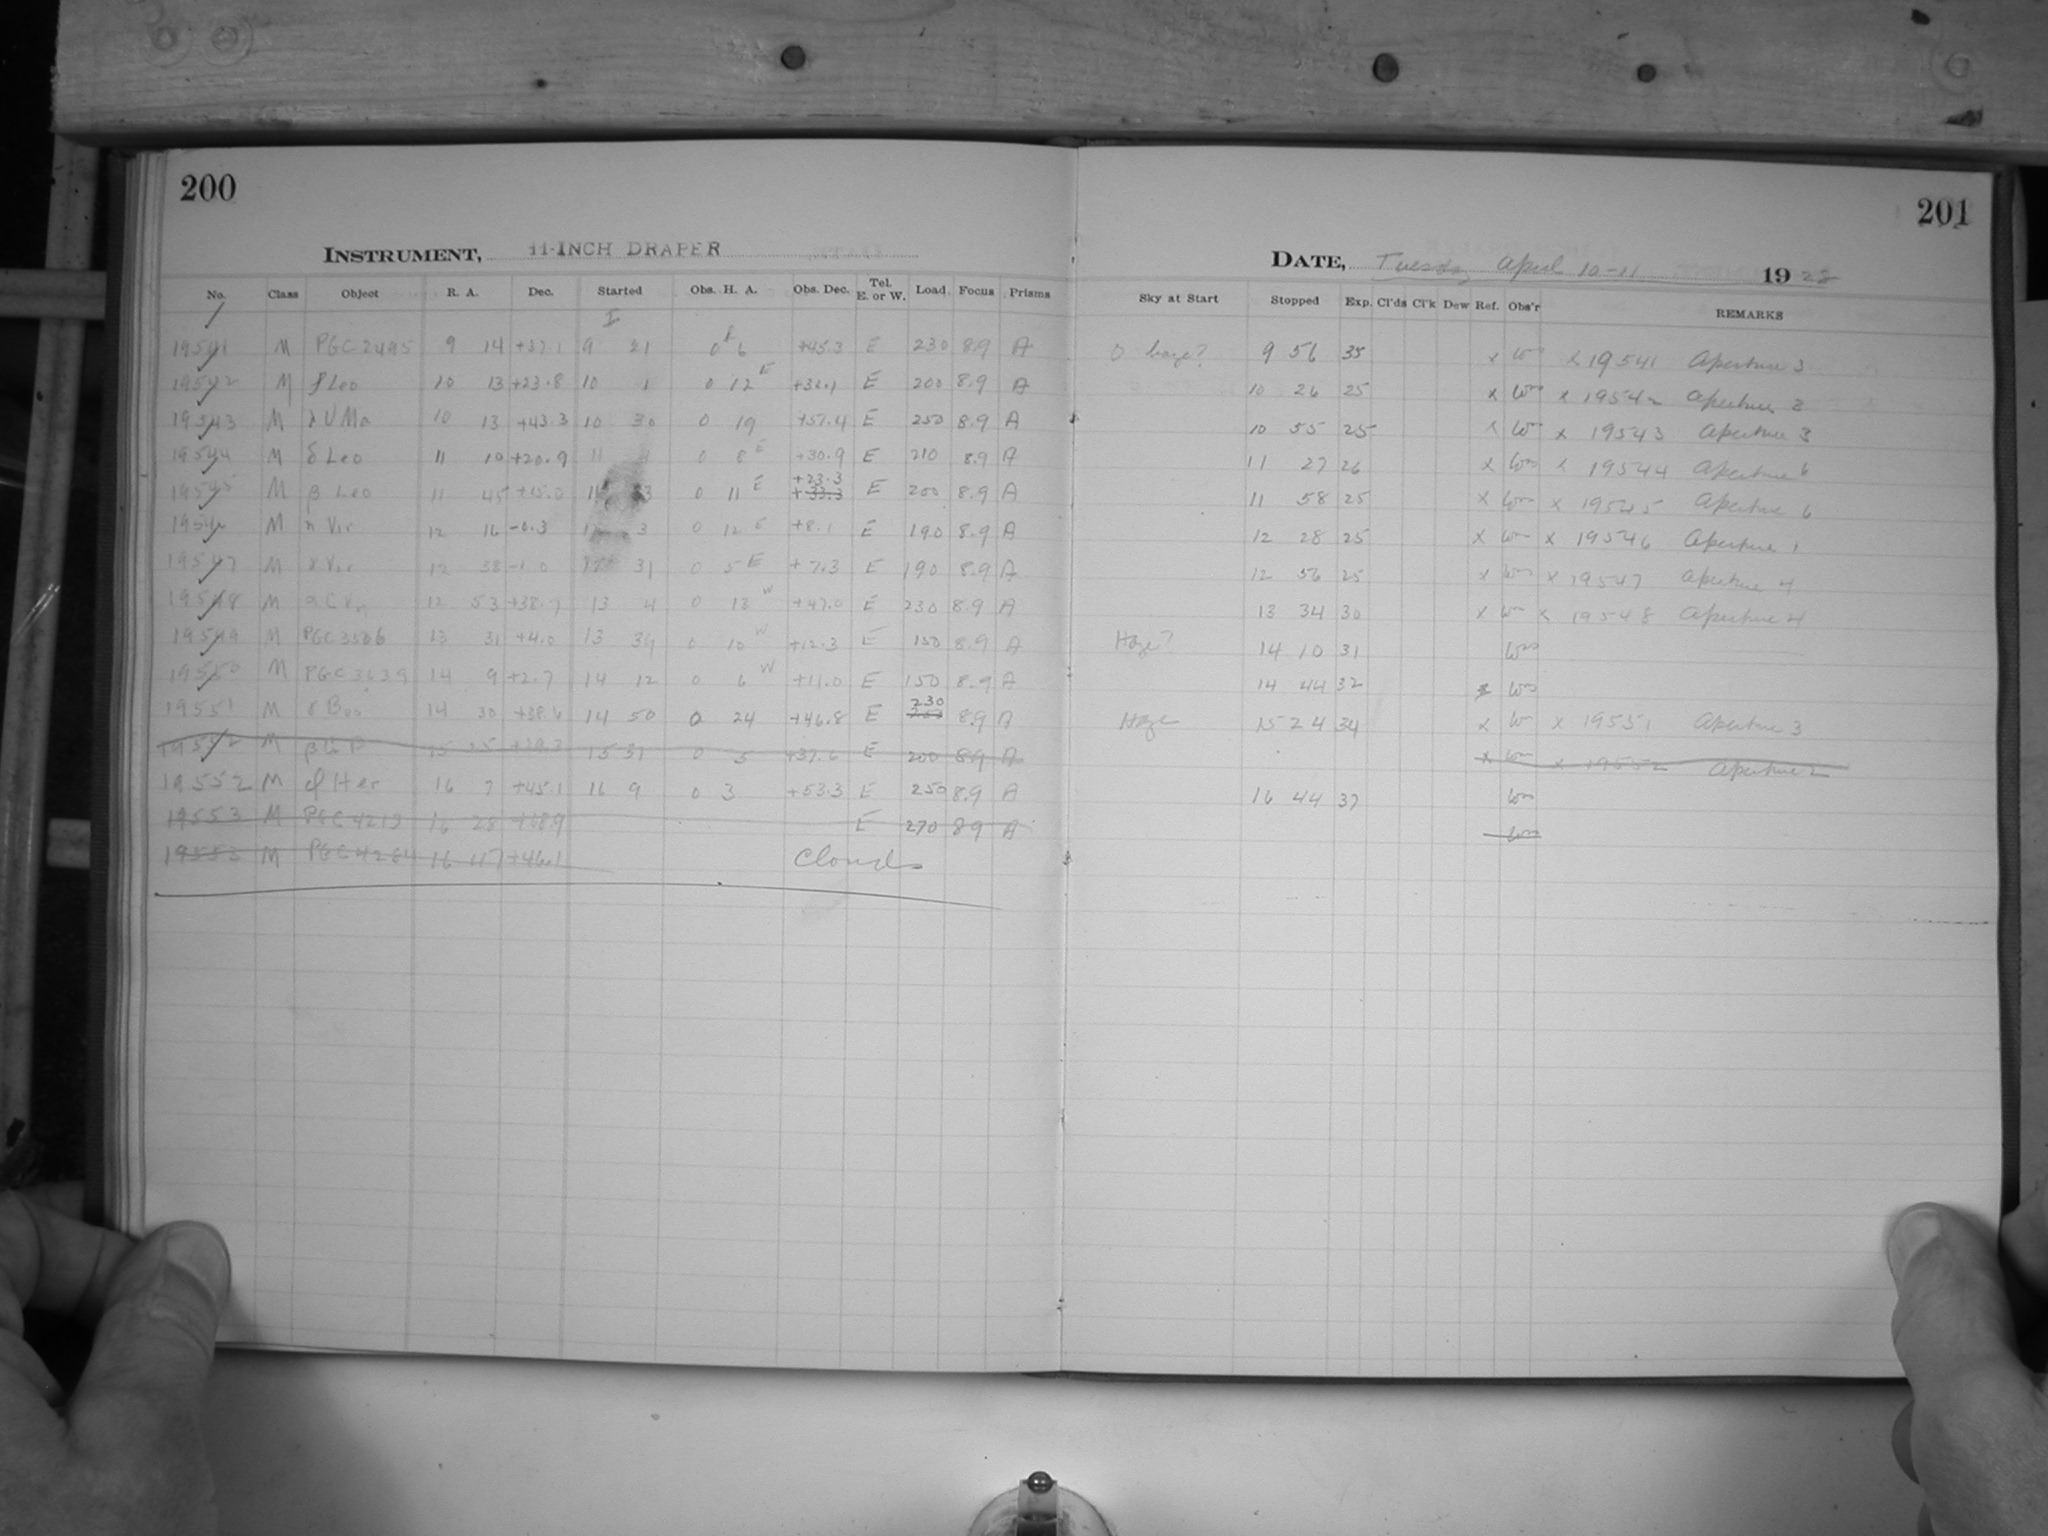 200
201
INSTRUMENT, 11-INCH DRAPER
DATE, Tuesday April 10-11 1928
No. Class Object R. A. Dec. Started Obs. H. A. Obs. Dec. Tel. E. or W. Load Focus Prisms Sky at Start Stopped Exp. Cl'ds Cl'k Dew Ref. Obs'r REMARKS
19541 M PGC 2495 9 14 +37.1 9 21 0 6 E +45.3 E 230 8.9 A 0 haze? 9 56 35 x x 19541 Aperture 3
19542 M ζ Leo 10 13 +23.8 10 1 0 12 E E 200 8.9 A 10 26 25 x x 19542 Aperture 3
19543 M λ UMa 10 13 +43.3 10 30 0 19 +57.4 E 250 8.9 A 10 55 25 x x 19543 Aperture 3
19544 M δ Leo 11 10 +20.9 11 1 0 8 E +30.9 E 210 8.9 A 11 27 26 x x 19544 Aperture 6
19545 M β Leo 11 45 +15.0 11 33 0 11 E +23.3 +33.3 E 200 8.9 A 11 58 25 x x 19545 Aperture 6
19546 M η Vir 12 16 -0.3 12 3 0 12 E +8.1 E 190 8.9 A 12 28 25 x x 19546 Aperture 1
19547 M γ Vir 12 38 -1.0 12 31 0 5 E +7.3 E 190 8.9 A 12 56 25 x x 19547 Aperture 4
19548 M α CVn 12 53 +38.7 13 4 0 13 W +47.0 E 230 8.9 A 13 34 30 x x 19548 Aperture 4
19549 M PGC 3506 13 31 +4.0 13 39 0 10 W +12.3 E 150 8.9 A Haze? 14 10 31
19550 M PGC 3639 14 9 +2.7 14 12 0 6 W +11.0 E 150 8.9 A 14 44 32 x
19551 M γ Boo 14 30 +38.6 14 50 0 24 +46.8 E 230 8.9 A Haze 15 24 34 x x 19551 Aperture 3
19552 M β 15 25 +29.3 15 31 0 5 +37.6 E 200 8.9 A x x 19552 Aperture 2
19552 M φ Her 16 7 +45.1 16 9 0 3 +53.3 E 250 8.9 A 16 44 37
19553 M PGC 4213 16 28 E 270 8.9 A
19553 M PGC 4264 16 47 +46.1 Clouds